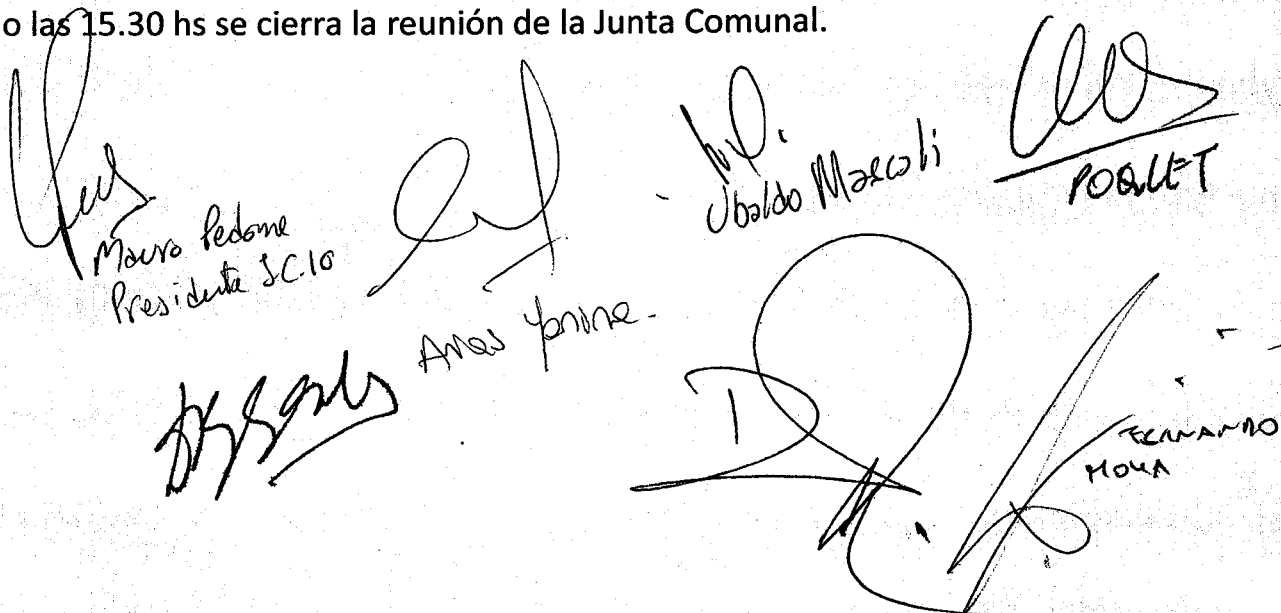 o las 15.30 hs se cierra la reunión de la Junta Comunal.
Mauro Pedome
Presidente J.C.10
Ubaldo Mascoli
POQUET
Arias Yanina.
FERNANDO
MOYA